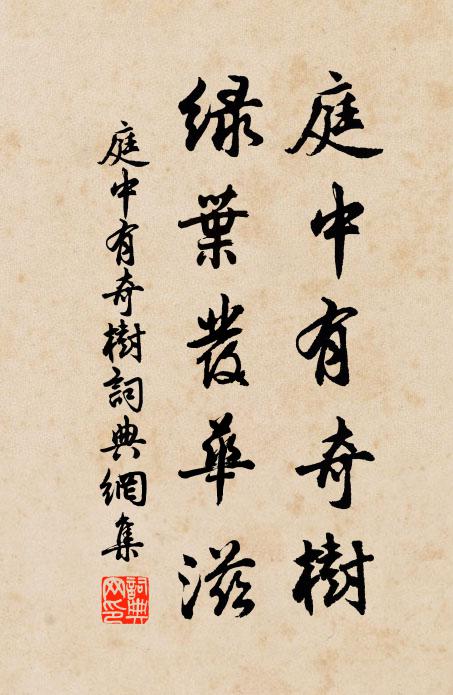 庭中有奇樹
綠葉發華滋
庭中有奇樹詞典網集
詞典
网印